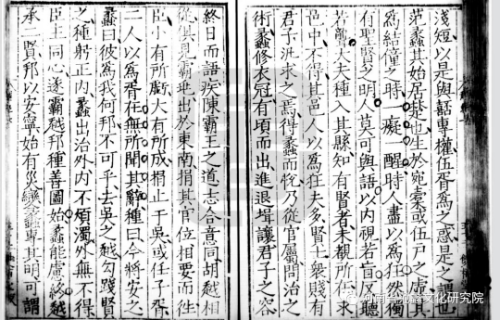 淺短以是與嚭專權伍胥爲之惑是之謂也
范蠡其始居楚也生於宛橐或伍户之虛其
爲結僮之時一癡一醒時人盡以爲狂然獨
有聖賢之明人莫可與語以内視若盲反聽
若聾大夫種入其縣知有賢者未覩所在求
邑中不得其邑人以爲狂夫多賢士衆賤有
君子汎求之焉得蠡而悅乃從官屬問治之
術蠡修衣冠有頃而出進退揖讓君子之容
終日而語疾陳霸王之道志合意同胡越相
從俱見霸兆出於東南捐其官位相要而往
臣小有所虧大有所成捐止于吳或任子胥
二人以爲胥在無所聞其辭種曰今將安之
蠡曰彼爲我何邦不可乎去吳之越勾踐賢
之種躬正内蠡出治外内不煩濁外無不得
臣主同心遂霸越邦種善圖始蠡能慮終越
承二賢邦以安寧始有灾變蠡專其明可謂
河南省范蠡文化研究院